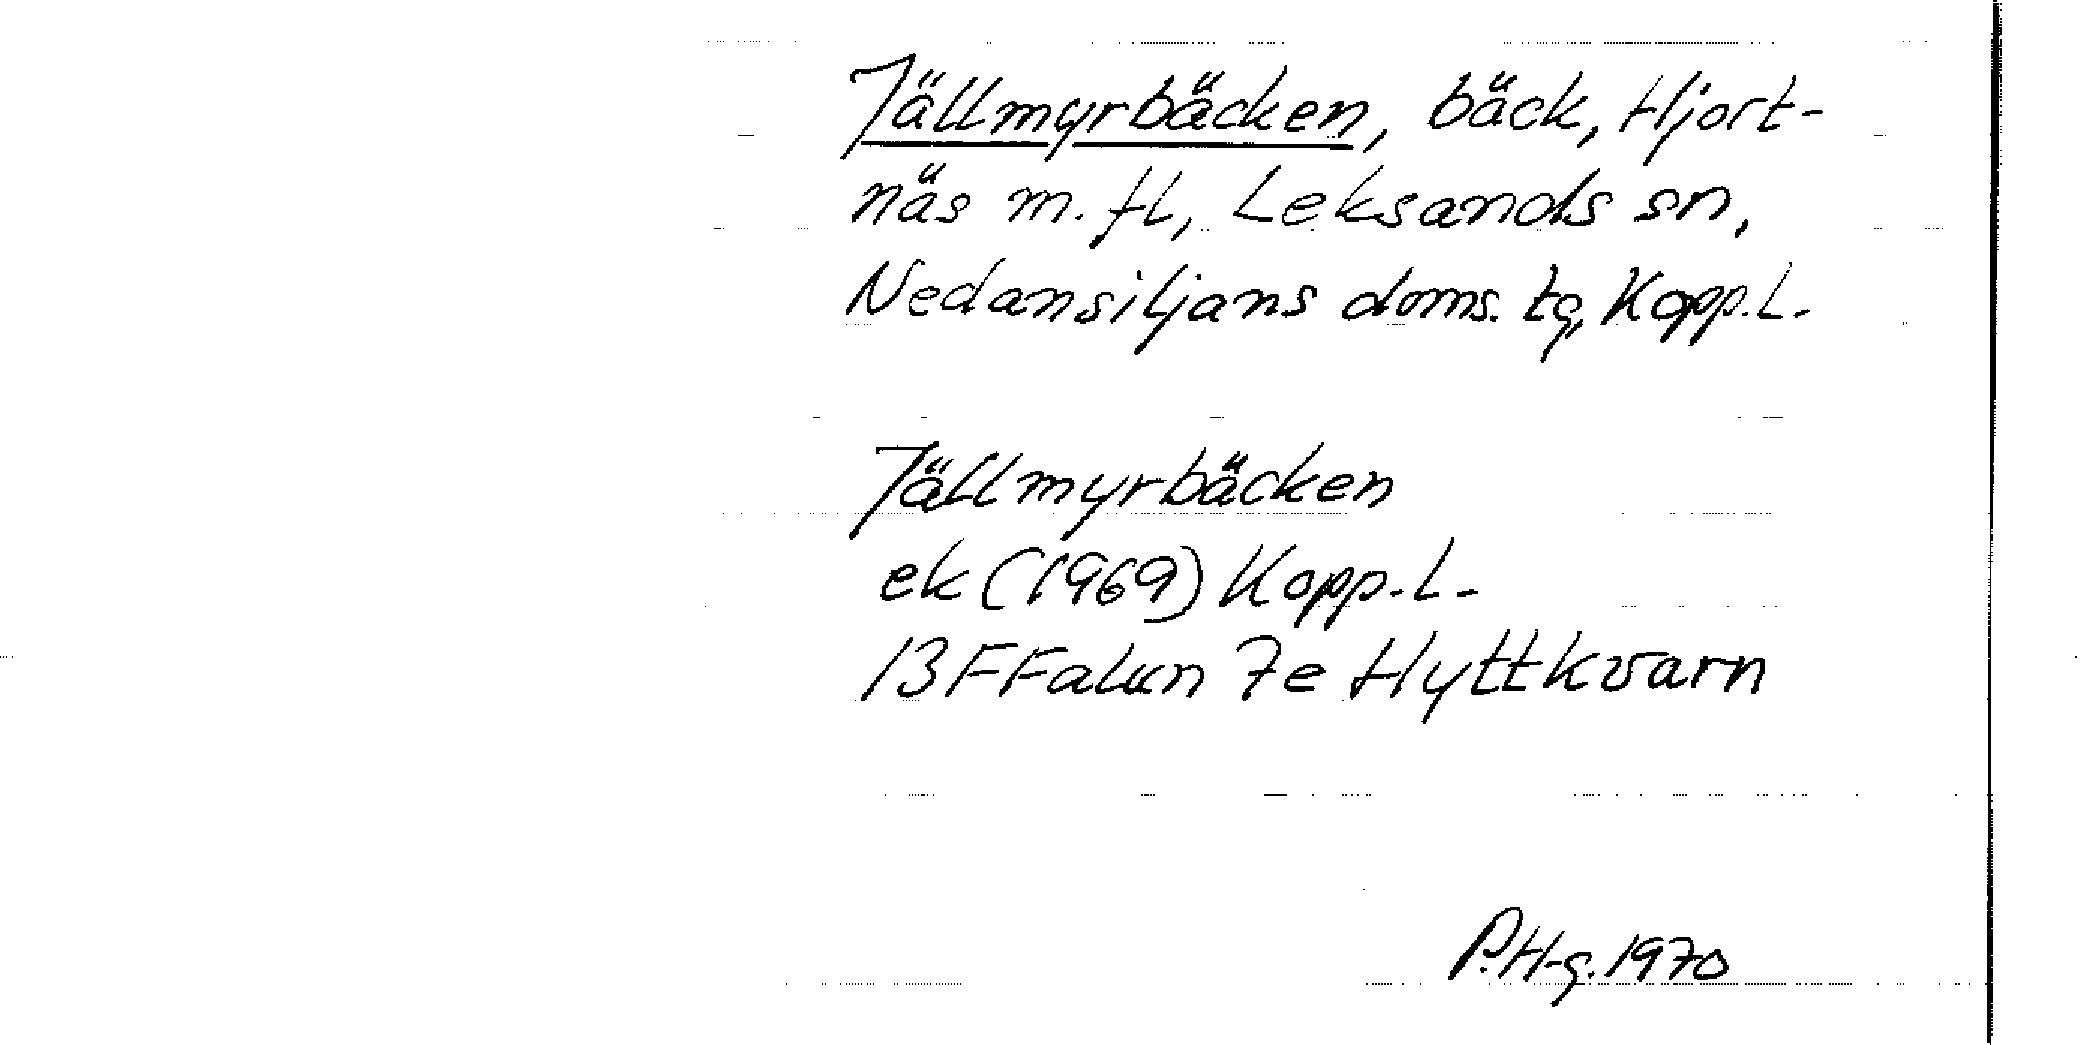 Jällmyrbäcken, bäck, Hjort-
näs m. fl, Leksands sn,
Nedansiljans doms. tg, Kopp. L.
Jällmyrbäcken
ek (1969) Kopp. L.
13F Falun 7e Hyttkvarn
P. H-g. 1970